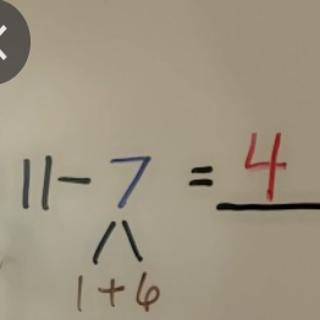 11-7 = 4
1+6